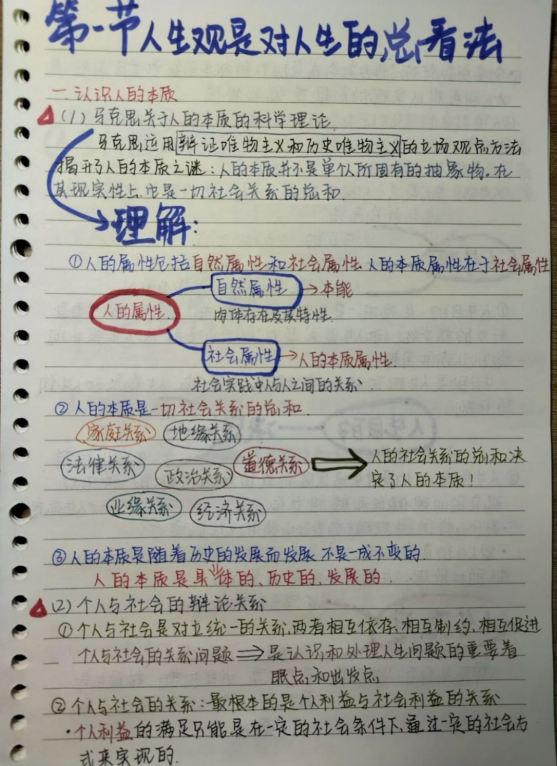 第一节人生观是对人生的总看法
一.认识人的本质
(1)马克思关于人的本质的科学理论.
马克思运用辩证唯物主义和历史唯物主义的立场观点方法
揭开了人的本质之谜：人的本质并不是单个人所固有的抽象物.在
其现实性上,它是一切社会关系的总和.
理解:
①人的属性包括自然属性和社会属性.人的本质属性在于社会属性
自然属性→本能
人的属性.
肉体存在及其特性.
社会属性→人的本质属性.
社会实践中人与人之间的关系
②人的本质是一切社会关系的总和.
家庭关系 地缘关系
法律关系 政治关系 道德关系 人的社会关系的总和决
定了人的本质!
业缘关系 经济关系
③人的本质是随着历史的发展而发展.不是一成不变的.
人的本质是具体的、历史的、发展的.
(2)个人与社会的辩论关系
①个人与社会是对立统一的关系,两者相互依存、相互制约、相互促进
个人与社会的关系问题⇒是认识和处理人生问题的重要着
眼点和出发点
②个人与社会的关系:最根本的是个人利益与社会利益的关系
·个人利益的满足只能是在一定的社会条件下、通过一定的社会方
式来实现的.